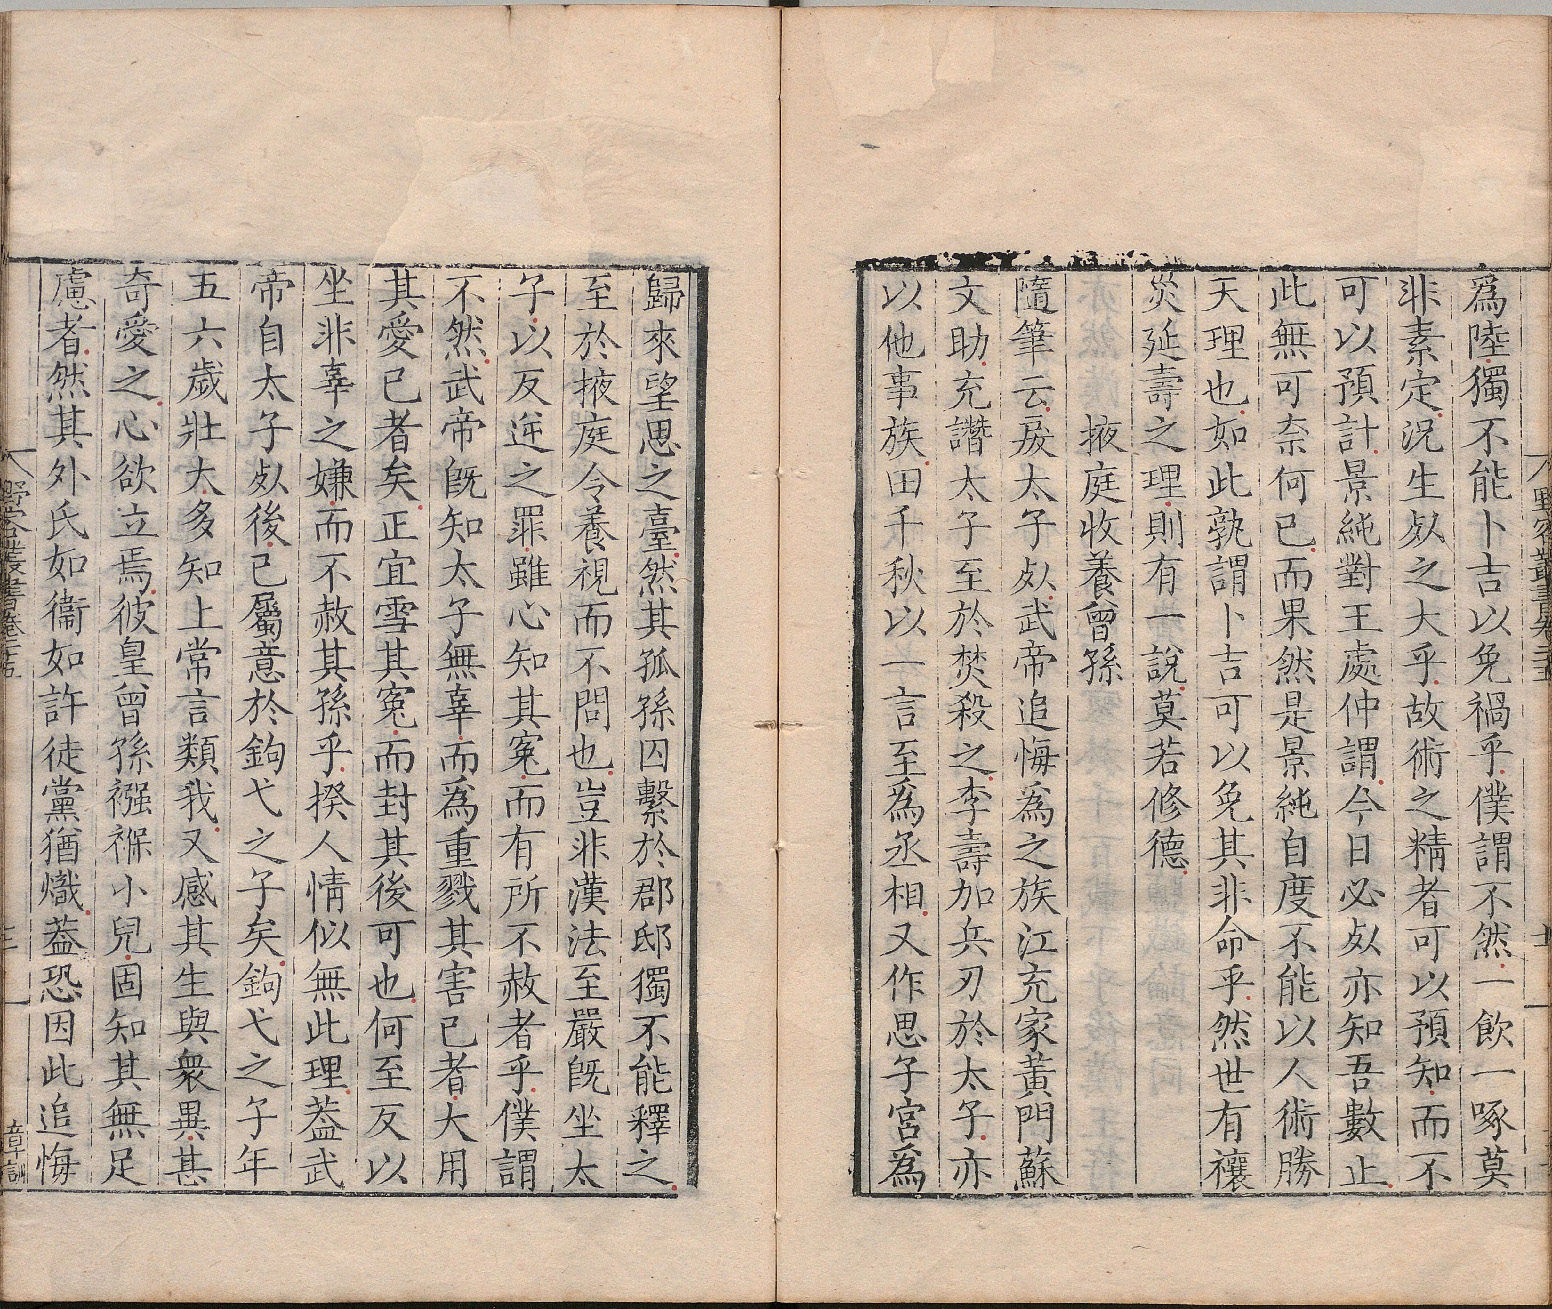 爲陸獨不能卜吉以免禍乎僕謂不然一飲一啄莫
非素定況生歿之大乎故術之精者可以預知而不
可以預計景純對王處仲謂今日必歿亦知吾數止
此無可柰何已而果然是景純自度不能以人術勝
天理也如此孰謂卜吉可以免其非命乎然世有禳
災延壽之理則有一說莫若修德
掖庭收養曾孫
隨筆云戾太子歿武帝追悔爲之族江充家黃門蘇
文助充譖太子至於焚殺之李壽加兵刃於太子亦
以他事族田千秋以一言至爲丞相又作思子宮爲
歸來望思之臺然其孤孫囚繫於郡邸獨不能釋之
至於掖庭令養視而不問也豈非漢法至嚴既坐太
子以反逆之罪雖心知其冤而有所不赦者乎僕謂
不然武帝既知太子無辜而爲重戮其害已者大用
其愛已者矣正宜雪其冤而封其後可也何至反以
坐非辜之嫌而不赦其孫乎揆人情似無此理蓋武
帝自太子歿後已屬意於鉤弋之子矣鉤弋之子年
五六歲壯大多知上常言類我又感其生與衆異甚
奇愛之心欲立焉彼皇曾孫襁褓小兒固知其無足
慮者然其外氏如衞如許徒黨猶熾蓋恐因此追悔
野客叢書卷二十五
章訓